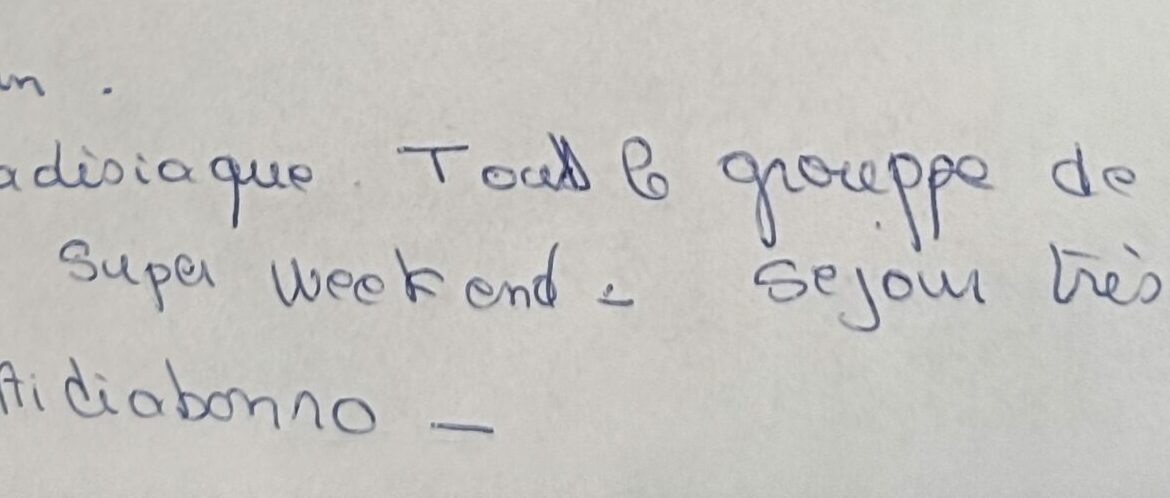 in .
adisiaque. Tout le grouppe de
Super weekend - Sejour très
Ai diabonno -